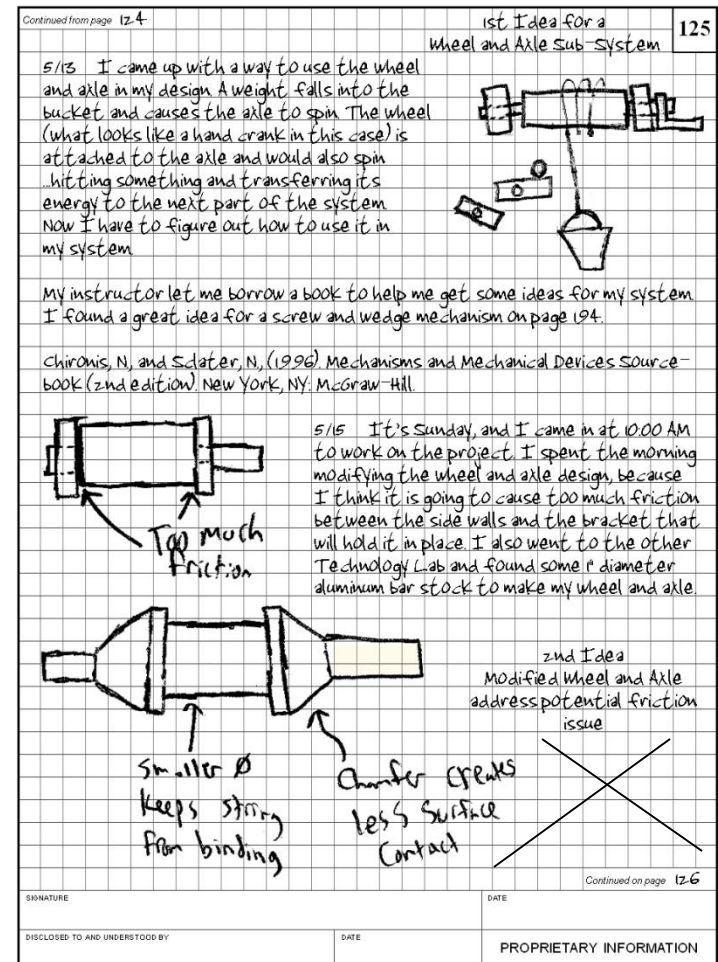 Continued from page 124
1st Idea for a
Wheel and Axle Sub-System
125
5/13 I came up with a way to use the wheel
and axle in my design. A weight falls into the
bucket and causes the axle to spin. The wheel
(what looks like a hand crank in this case) is
attached to the axle and would also spin
...hitting something and transferring its
energy to the next part of the system.
Now I have to figure out how to use it in
my system.
My instructor let me borrow a book to help me get some ideas for my system.
I found a great idea for a screw and wedge mechanism on page 194.
Chironis, N, and Sclater, N, (1996). Mechanisms and Mechanical Devices Source-
book (2nd edition). New York, NY: McGraw-Hill.
5/15 It's Sunday, and I came in at 10:00 AM
to work on the project. I spent the morning
modifying the wheel and axle design, because
I think it is going to cause too much friction
between the side walls and the bracket that
will hold it in place. I also went to the other
Technology Lab and found some 1" diameter
aluminum bar stock to make my wheel and axle.
Too Much
Friction
2nd Idea
Modified Wheel and Axle
address potential friction
issue
Smaller Ø
Keeps string
from binding
Chamfer creates
less surface
contact
Continued on page 126
SIGNATURE
DATE
DISCLOSED TO AND UNDERSTOOD BY
DATE
PROPRIETARY INFORMATION